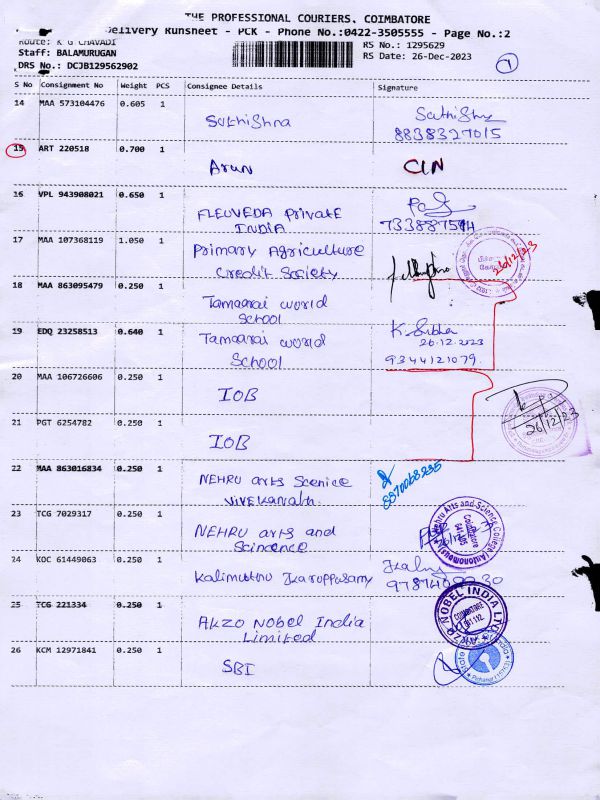 THE PROFESSIONAL COURIERS, COIMBATORE
Delivery Runsheet - PCK - Phone No.:0422-3505555 - Page No.:2
Route: K G CHAVADI
Staff: BALAMURUGAN
DRS No.: DCJB129562902
RS No.: 1295629
RS Date: 26-Dec-2023
S No Consignment No Weight PCS Consignee Details Signature
14 MAA 573104476 0.605 1
Sathishna Sathishna
8838327015
15 ART 220518 0.700 1
Arun CLN
16 VPL 943908021 0.650 1
FLEUVEDA Private
INDIA 7338875114
17 MAA 107368119 1.050 1
Primary Agriculture
Credit Society 26/12/23
18 MAA 863095479 0.250 1
Tamaarai world
School
19 EDQ 23258513 0.640 1
Tamaarai world K Subha
School 26.12.2023
9344121079.
20 MAA 106726606 0.250 1
IOB
26/12/23
21 PGT 6254782 0.250 1
IOB
22 MAA 863016834 0.250 1
NEHRU arts Scenice
Vivekanatha 8870068235
23 TCG 7029317 0.250 1
NEHRU arts and
Scincence
Nehru Arts and Science College (Autonomous)
Coimbatore
641 105
24 KOC 61449063 0.250 1
Kalimuthu Karuppusamy
25 TCG 221334 0.250 1
AKZO Nobel India
Limited
AKZO NOBEL INDIA LTD
COIMBATORE
26 KCM 12971841 0.250 1
SBI